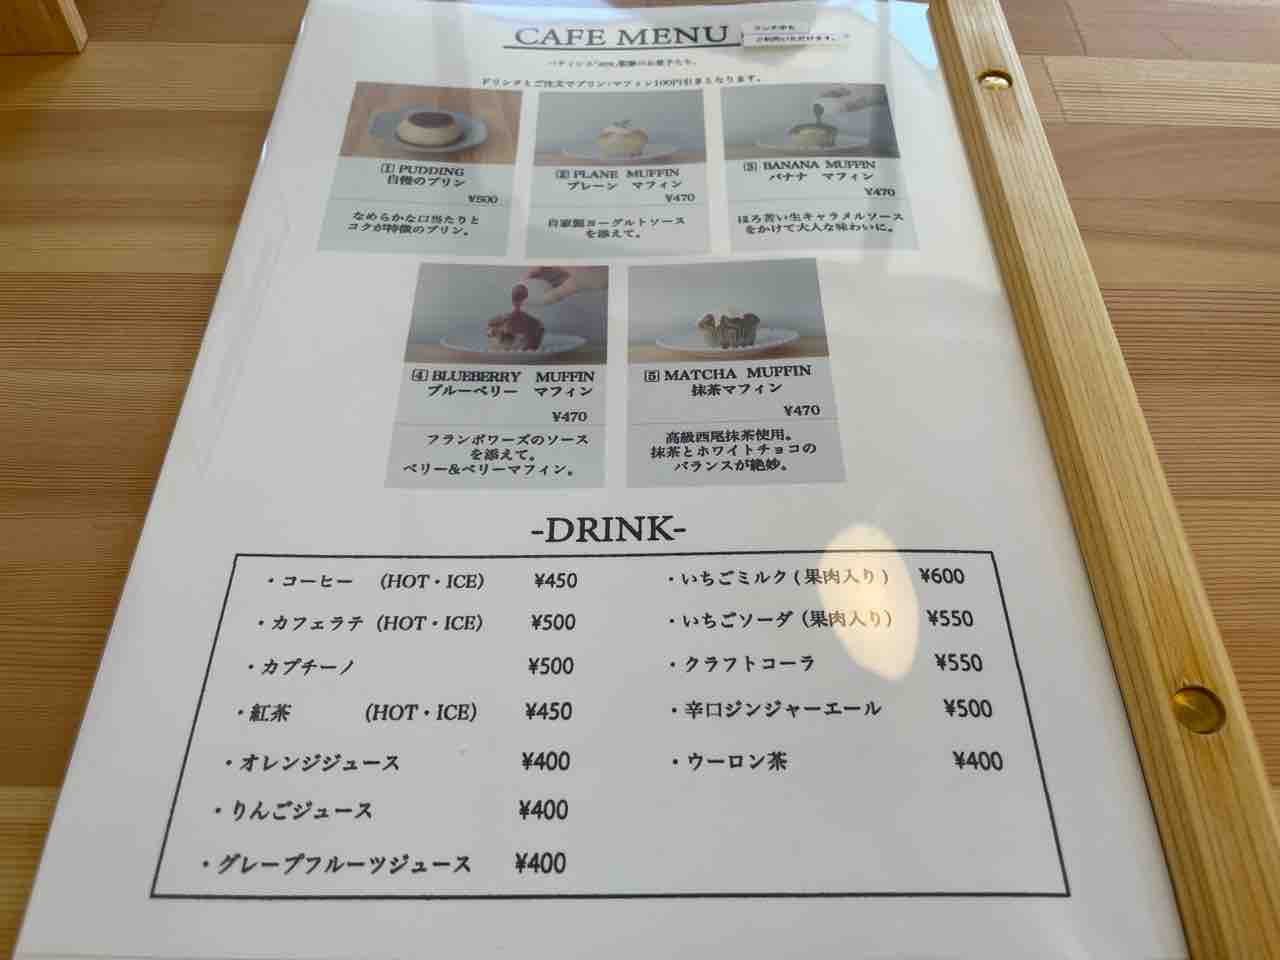 CAFE MENU
ランチ中も
ご利用いただけます。
ドリンクとご注文でプリン・マフィン100円引きとなります。
1 PUDDING
自慢のプリン
¥500
なめらかな口当たりと
コクが特徴のプリン。
2 PLANE MUFFIN
プレーン マフィン
¥470
自家製ヨーグルトソース
を添えて。
3 BANANA MUFFIN
バナナ マフィン
¥470
ほろ苦い生キャラメルソース
をかけて大人な味わいに。
4 BLUEBERRY MUFFIN
ブルーベリー マフィン
¥470
フランボワーズのソース
を添えて。
ベリー&ベリーマフィン。
5 MATCHA MUFFIN
抹茶マフィン
¥470
高級西尾抹茶使用。
抹茶とホワイトチョコの
バランスが絶妙。
-DRINK-
・コーヒー (HOT・ICE) ¥450
・カフェラテ (HOT・ICE) ¥500
・カプチーノ ¥500
・紅茶 (HOT・ICE) ¥450
・オレンジジュース ¥400
・りんごジュース ¥400
・グレープフルーツジュース ¥400
・いちごミルク(果肉入り) ¥600
・いちごソーダ(果肉入り) ¥550
・クラフトコーラ ¥550
・辛口ジンジャーエール ¥500
・ウーロン茶 ¥400